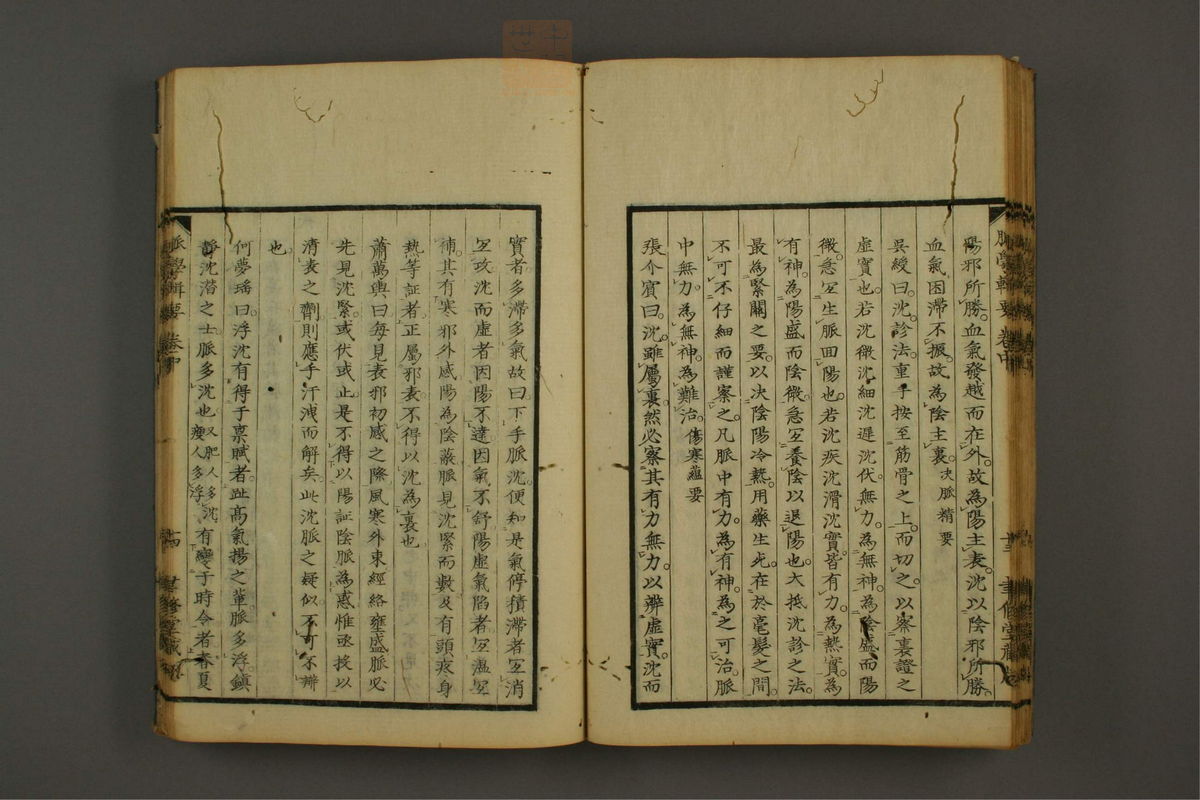 陽邪所勝。血氣發越而在外。故為陽主表。沈以陰邪所勝。
血氣困滯不振。故為陰主裏。决脈精要
吳綬曰。沈。診法。重手按至筋骨之上。而切之。以察裏證之
虛實也。若沈微沈細沈遲沈伏。無力。為無神。為陰盛而陽
微。急宜生脈回陽也。若沈疾沈滑沈實。皆有力。為熱實。為
有神。為陽盛而陰微。急宜養陰以退陽也。大抵沈診之法。
最為緊關之要。以決陰陽冷熱。用藥生死。在於毫髮之間。
不可不仔細而謹察之。凡脈中有力。為有神。為之可治。脈
中無力。為無神。為難治。傷寒蘊要
張介賓曰。沈。雖屬裏。然必察其有力無力。以辨虛實。沈而
脈學輯要 卷中 十三 聿修堂藏
實者。多滯多氣。故曰。下手脈沈。便知是氣。停積滯者。宜消
宜攻。沈而虛者。因陽不達。因氣不舒。陽虛氣陷者。宜溫宜
補。其有寒邪外感。陽為陰蔽。脈見沈緊而數。及有頭疼身
熱等証者。正屬邪表。不得以沈為裏也。
蕭萬輿曰。每見表邪初感之際。風寒外束。經絡壅盛。脈必
先見沈緊。或伏或止。是不得以陽証陰脈為惑。惟亟投以
清表之劑。則應手汗洩而解矣。此沈脈之疑似。不可不辨
也。
何夢瑤曰。浮沈有得于稟賦者。趾高氣揚之輩。脈多浮。鎮
靜沈潛之士。脈多沈也。又肥人多沈。瘦人多浮。有變于時令者。春夏
脈學輯要 卷中 十四 聿修堂藏